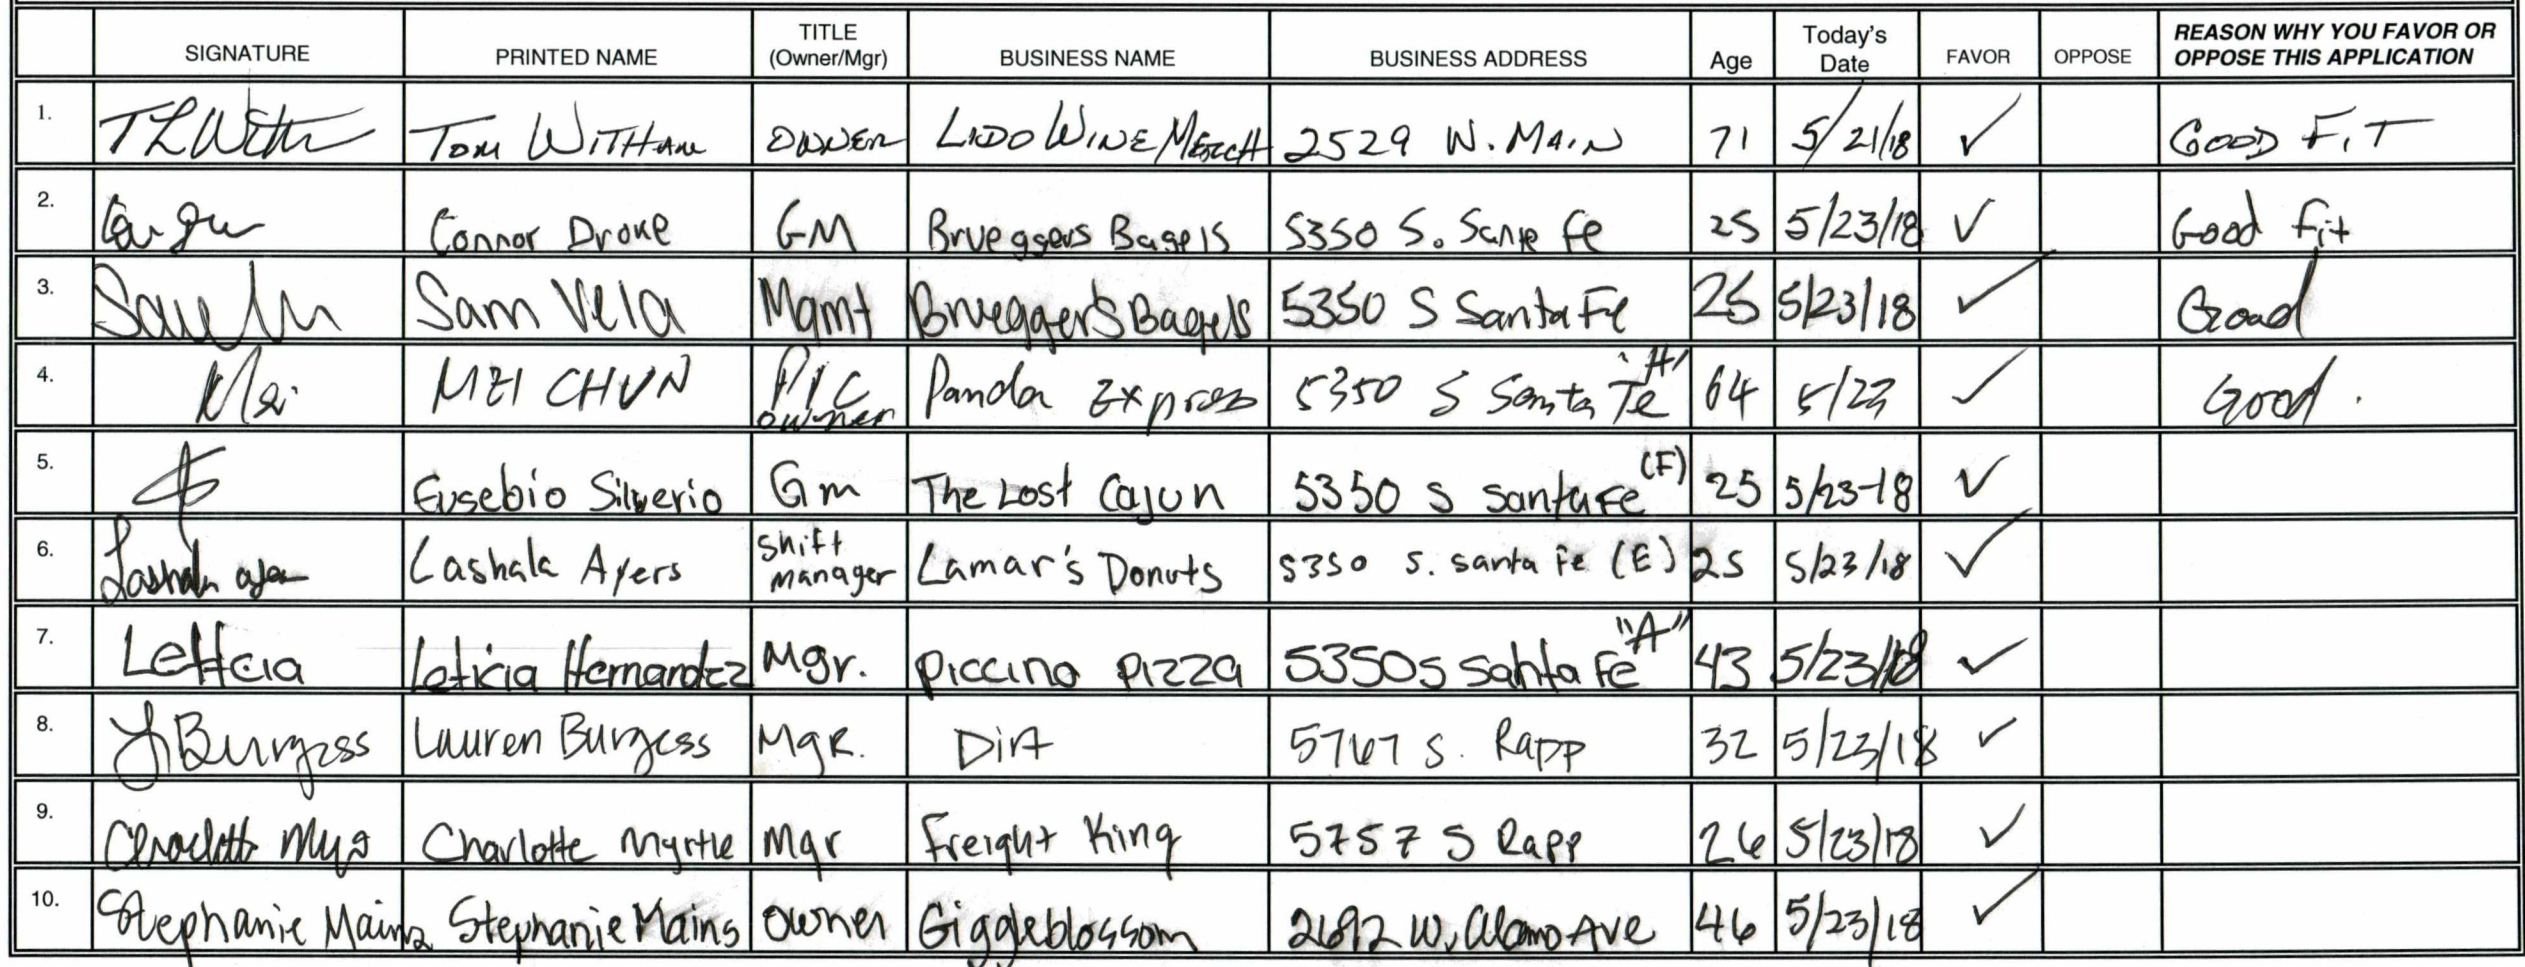 SIGNATURE PRINTED NAME TITLE (Owner/Mgr) BUSINESS NAME BUSINESS ADDRESS Age Today's Date FAVOR OPPOSE REASON WHY YOU FAVOR OR OPPOSE THIS APPLICATION
1. TLWith Tom Witham OWNER LIDO WINE MERCH 2529 W. MAIN 71 5/21/18 ✓ GOOD FIT
2. Connor Drake GM Brueggers Bagels 5350 S. Sante Fe 25 5/23/18 ✓ Good fit
3. Sam Vela Mgmt Bruegger's Bagels 5350 S Santa Fe 25 5/23/18 ✓ Good
4. Mei MEI CHUN PIC owner Panda Express 5350 S Santa Fe "H" 64 5/23 ✓ Good.
5. Eusebio Silverio Gm The Lost Cajun 5350 S Santa Fe (F) 25 5/23-18 ✓
6. Lashala Ayers Lashala Ayers Shift manager Lamar's Donuts 5350 S. Santa Fe (E) 25 5/23/18 ✓
7. Leticia Leticia Hernandez Mgr. Piccino Pizza 5350 S Santa Fe "A" 43 5/23/18 ✓
8. L Burgess Lauren Burgess Mgr. Dirt 5767 S. Rapp 32 5/23/18 ✓
9. Charlotte Charlotte Myrtle Mgr Freight King 5757 S Rapp 26 5/23/18 ✓
10. Stephanie Mains Stephanie Mains owner Giggleblossom 2692 W. Alamo Ave 46 5/23/18 ✓